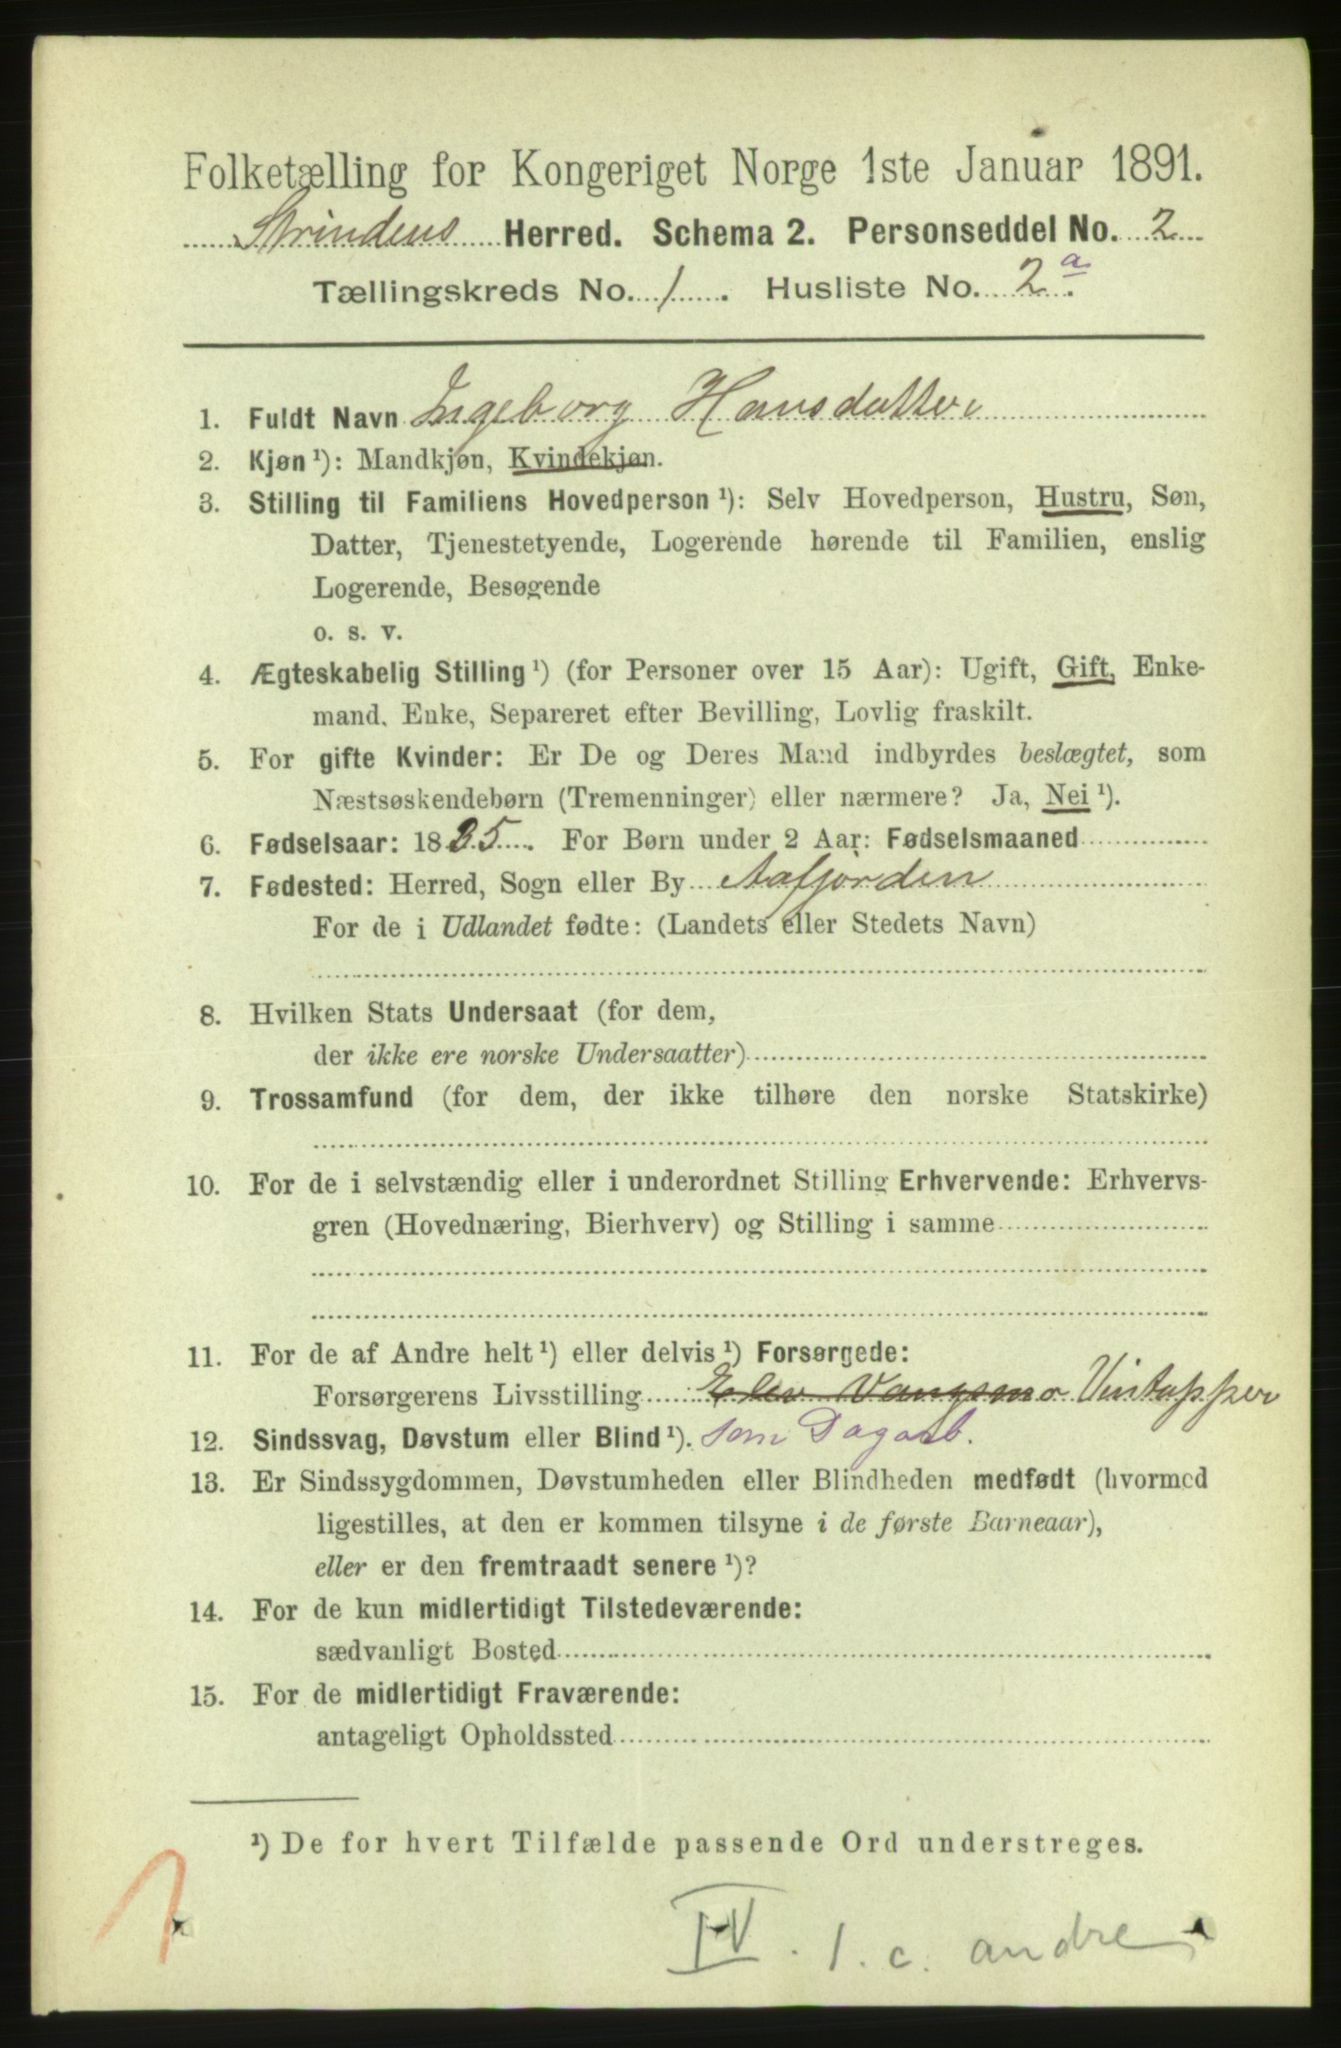 Folketælling for Kongeriget Norge 1ste Januar 1891.
Strindens Herred. Schema 2. Personseddel No. 2
Tællingskreds No. 1. Husliste No. 2a.
1. Fuldt Navn Ingeborg Hansdatter
2. Kjøn ¹): Mandkjøn, Kvindekjøn.
3. Stilling til Familiens Hovedperson ¹): Selv Hovedperson, Hustru, Søn,
Datter, Tjenestetyende, Logerende hørende til Familien, enslig
Logerende, Besøgende
o. s. v.
4. Ægteskabelig Stilling ¹) (for Personer over 15 Aar): Ugift, Gift, Enke-
mand, Enke, Separeret efter Bevilling, Lovlig fraskilt.
5. For gifte Kvinder: Er De og Deres Mand indbyrdes beslægtet, som
Næstsøskendebørn (Tremenninger) eller nærmere? Ja, Nei ¹).
6. Fødselsaar: 1835. For Børn under 2 Aar: Fødselsmaaned
7. Fødested: Herred, Sogn eller By Aafjorden
For de i Udlandet fødte: (Landets eller Stedets Navn)
8. Hvilken Stats Undersaat (for dem,
der ikke ere norske Undersaatter)
9. Trossamfund (for dem, der ikke tilhøre den norske Statskirke)
10. For de i selvstændig eller i underordnet Stilling Erhvervende: Erhvervs-
gren (Hovednæring, Bierhverv) og Stilling i samme
11. For de af Andre helt ¹) eller delvis ¹) Forsørgede:
Forsørgerens Livsstilling Vintapper
12. Sindssvag, Døvstum eller Blind ¹). som Dagarb.
13. Er Sindssygdommen, Døvstumheden eller Blindheden medfødt (hvormed
ligestilles, at den er kommen tilsyne i de første Barneaar),
eller er den fremtraadt senere ¹)?
14. For de kun midlertidigt Tilstedeværende:
sædvanligt Bosted
15. For de midlertidigt Fraværende:
antageligt Opholdssted
¹) De for hvert Tilfælde passende Ord understreges.
1
IV. 1. c. andre